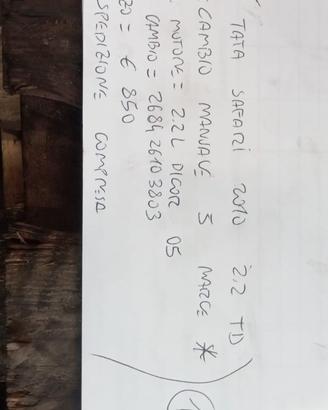 TATA SAFARI 2010 2.2 TD
CAMBIO MANUALE 5 MARCE *
MOTORE = 2.2 L DICOR 05
CAMBIO = 268426103803
ZO = € 850
SPEDIZIONE COMPRESA
1